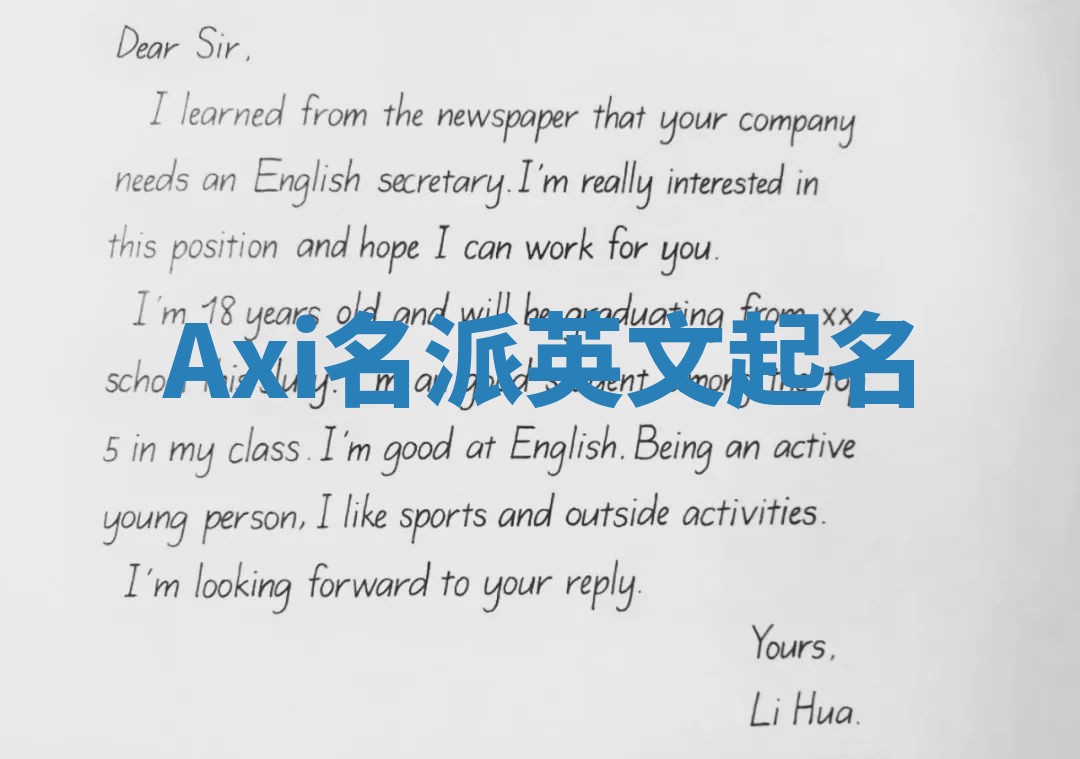 Dear Sir,
I learned from the newspaper that your company
needs an English secretary. I'm really interested in
this position and hope I can work for you.
I'm 18 years old and will be graduating from xx
Axi名派英文起名
school this July. I'm a good student among the top
5 in my class. I'm good at English. Being an active
young person, I like sports and outside activities.
I'm looking forward to your reply.
Yours,
Li Hua.